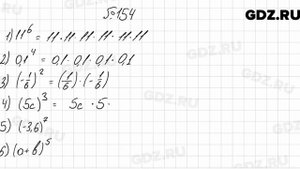 GDZ.RU
№154
1) 11⁶ = 11·11·11·11·11·11
2) 0,1⁴ = 0,1·0,1·0,1·0,1
3) (-1/6)² = (1/6)·(-1/6)
4) (5c)³ = 5c · 5
5) (-3,6)⁷
6) (a+b)⁵